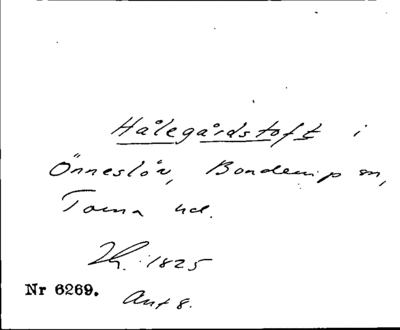 Hålegårdstoft i
Önneslöv, Bonderup sn,
Torna hd.
Lh. 1825
Nr 6269. Ant 8.